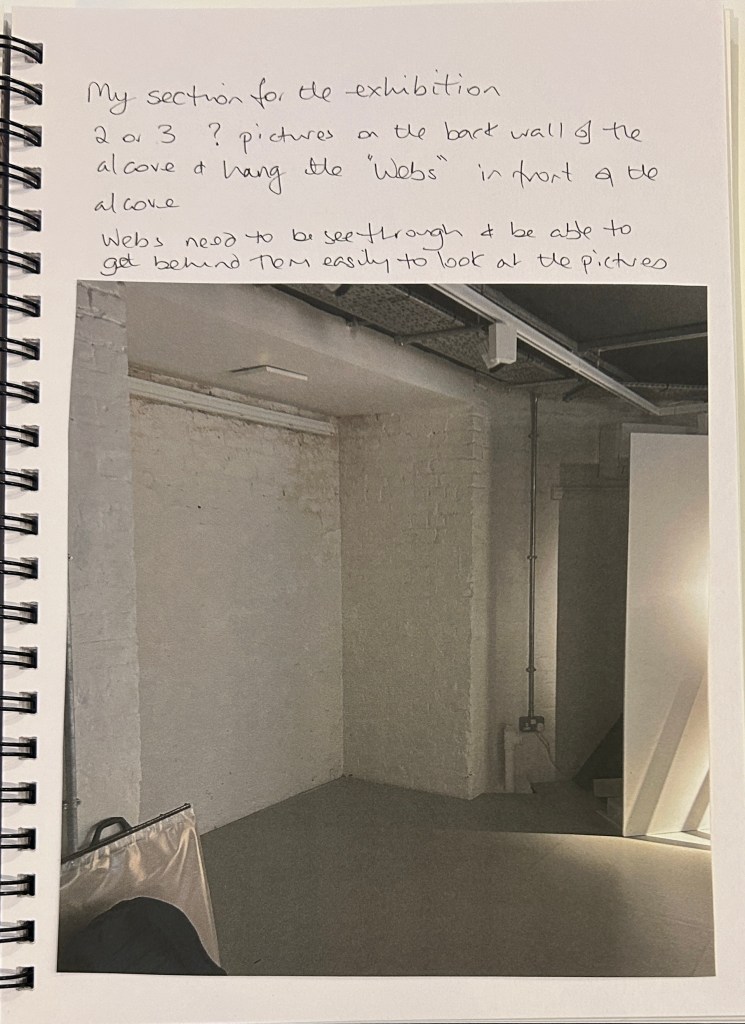 My section for the exhibition
2 or 3 ? pictures on the back wall of the
alcove & hang the "Webs" in front of the
alcove
Webs need to be see through & be able to
get behind them easily to look at the pictures